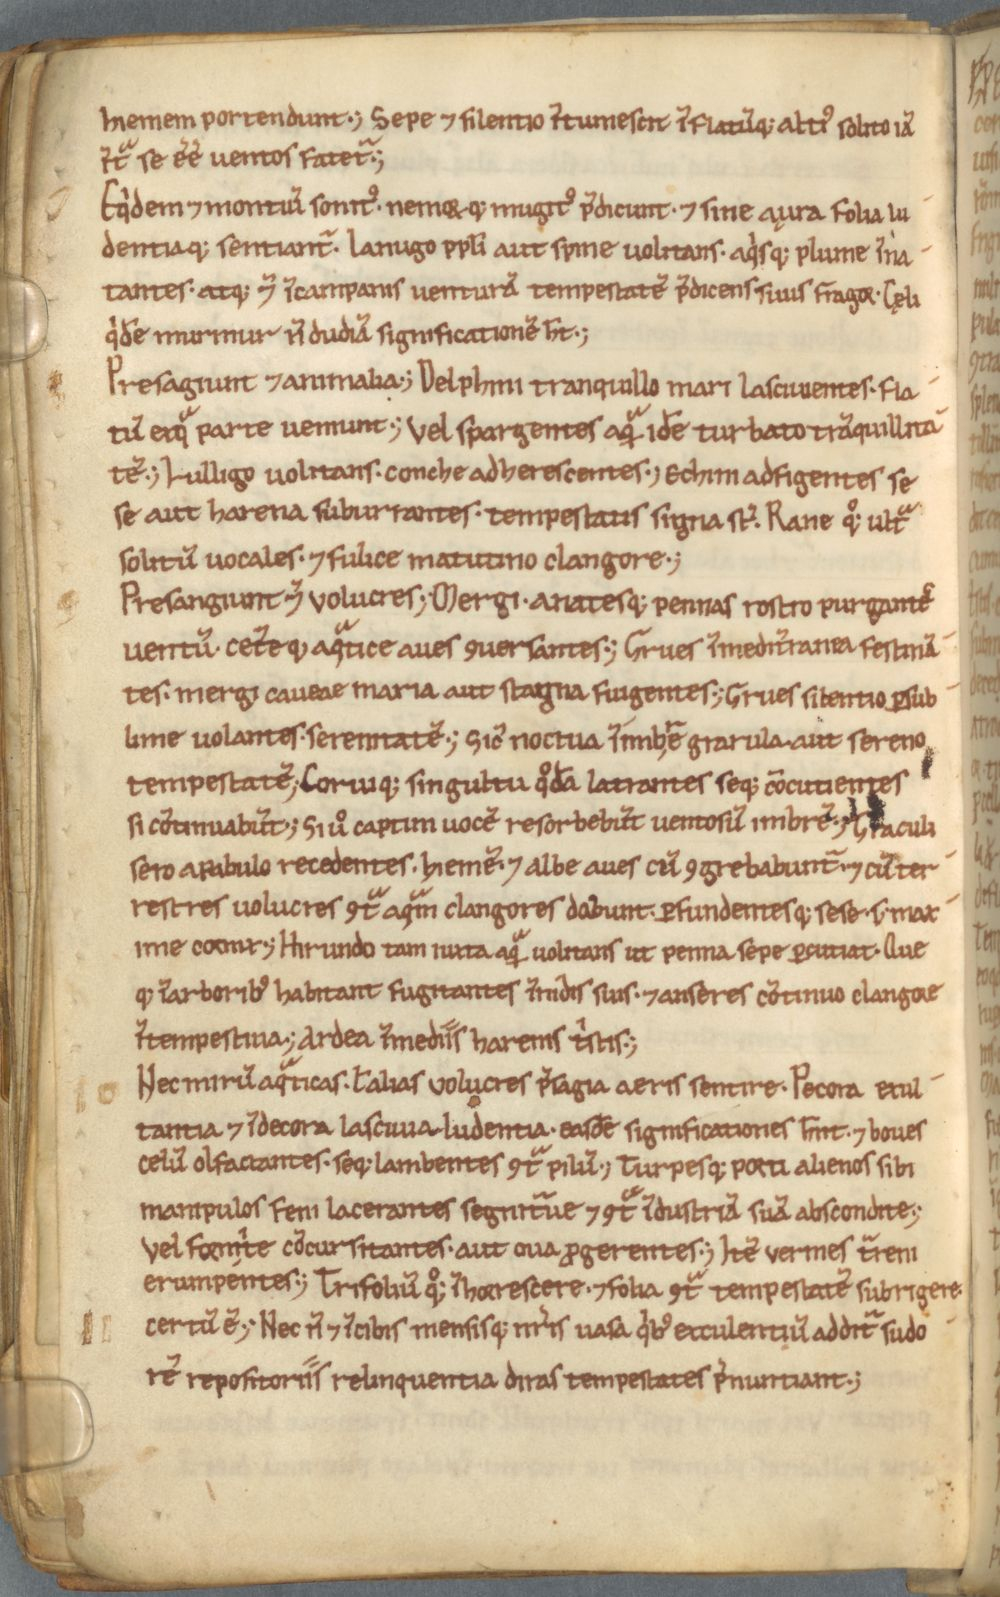 hiemem portendunt·; Sepe ⁊ silentio ı̄tumescit ı̄flatūq; alti᷒ solito iā
ı̄tᷓ se ēē uentos fatet̄·;
Eq̇dem ⁊ montiū sonit᷒· nemoꝝq; mugit᷒ p̄dicunt· ⁊ sine aura folia lu
dentiaq; sentiant̄· lanugo ppl̄i aut spine uolitans· aq̇sq; plume ı̄na
tantes· atq; ⁊̄ ı̄campanis uenturā tempestatē p̄dicens suus fragor· Cęli
q̇dē murmur n̄ dudiā significationē h̄t·;
Presagiunt ⁊ animalia·; Delphini tranquillo mari lasciuientes· fla
tū exqᷓ parte ueniunt·; Vel spargentes aqᷓ idē turbato trāquillita
tē·; Lulligo uolitans· conche adherescentes·; Echini adfigentes se
se aut harena suburrantes· tempestatis signa st̄· Rane qͦ; ult̄ᷓ
solitū uocales· ⁊ fulice matutino clangore·;
Presangiunt ⁊̄ volucres·; Mergi· anatesq; pennas rostro purgantē
uentū· cet̄eq; aqᷓtice aues ꝯuersantes·; Grues ı̄medit̄ranea festinā
tes· mergi caueae maria aut stagna fugientes·; Grues silentio ꝑsub
lime uolantes· serenitatē·; Sic̄ noctua ı̄imbrē grarula· aut sereno
tempestatē·; Coruiq; singultu qͦdā latrantes seq; cōcutientes
si cōtinuabūt·; Si uͦ captim uocē resorbebūt uentosū imbrē·; Graculi
sero a pabulo recedentes· hiemē· ⁊ albe aues cū ꝯgrebabunt̄· ⁊ cū ter
restres uolucres ꝯtᷓ aqᷓm clangores dabunt· ꝑfundentesq; sese· s; max
ime cornix·; Hirundo tam iuxta aqᷓ uolitans ut penna sepe ꝑcutiat· Que
q; ı̄arborib᷒ habitant fugitantes ı̄nidis suis· ⁊ anseres cōtinuo clangore
ı̄tempestiua·; Ardea ı̄mediis harenis tristis·;
Nec mirū aqᷓticas· t̄alias volucres p̄sagia aeris sentire· Pecora exul
tantia ⁊ ı̄decora lasciuia ludentia· easdē significationes h̄nt· ⁊ boues
celū olfactantes· seq; lambentes ꝯtᷓ pilū·; Turpesq; porci alienos sibi
manipulos feni lacerantes segnit̄ue ⁊ ꝯtᷓ ı̄dustriā suā abscondite·;
vel formite cōcursitantes· aut oua ꝓgerentes·; Itē vermes t̄reni
erumpentes·; Trifoliū qͦ; ı̄horrescere· ⁊ folia ꝯtᷓ tempestatē subrigere·
certū ē·; Nec n̄ ⁊ ı̄cibis mensisq; nr̄is uasa q̇b᷒ exculentiū addit̄ sudo
rē repositoriis relinquentia diras tempestates p̄nuntiant·;